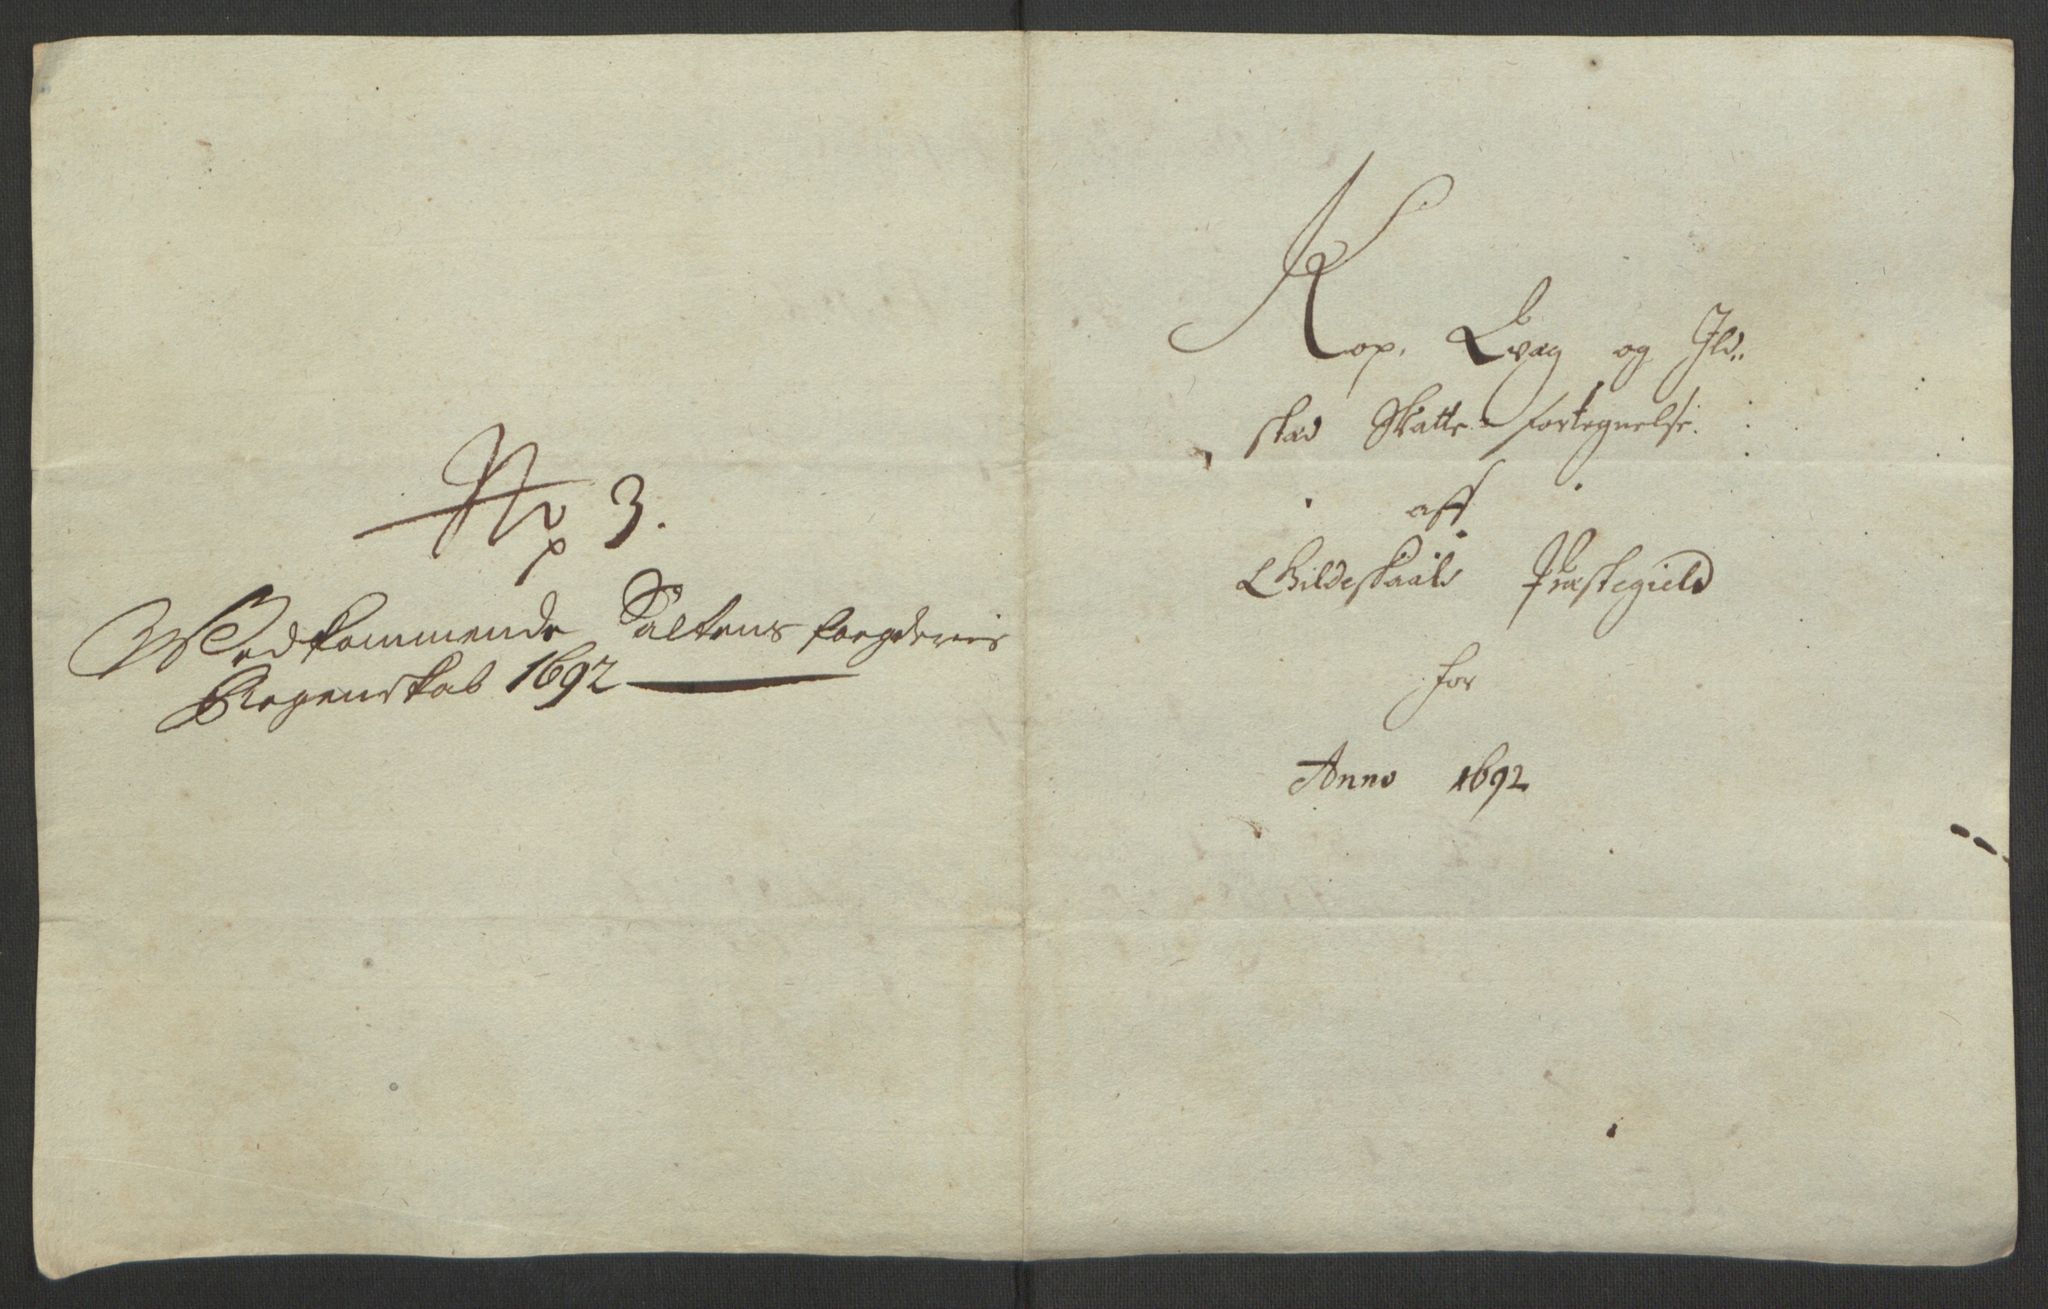 No 3.
Vedkommende Saltens fogderies
Regenskab 1692
Kop, Qvæg og Ild-
stæd Skatte fortegnelse.
aff
Gildeskaals Præstegield
for
Anno 1692